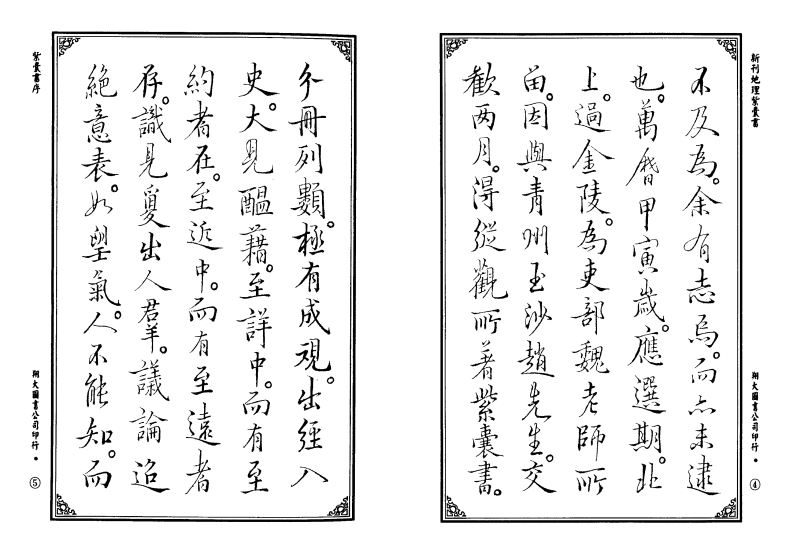 新刊地理紫囊書
不及為。余有志焉。而亦未逮
也。萬曆甲寅歲。應選期。北
上。過金陵。為吏部魏老師所
留。因與青州玉沙趙先生。交
歡兩月。得從觀所著紫囊書。
翔大圖書公司印行・
④
紫囊書序
分冊列類。極有成視。出經入
史。大見醞藉。至詳中。而有至
約者在。至近中。而有至遠者
存。識見夐出人君羊。議論迢
絕意表。如望氣。人不能知。而
翔大圖書公司印行・
⑤